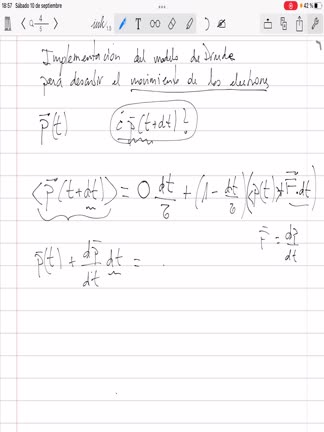 18:57 Sábado 10 de septiembre 42 %
4
Implementación del modelo de Drude
para describir el movimiento de los electrones
p⃗(t) ¿p⃗(t+dt)?
⟨p⃗(t+dt)⟩ = 0 dt/τ + (1 - dt/τ)(⟨p(t)⟩ + F⃗·dt)
F⃗ = dp⃗/dt
p⃗(t) + dp⃗/dt dt =